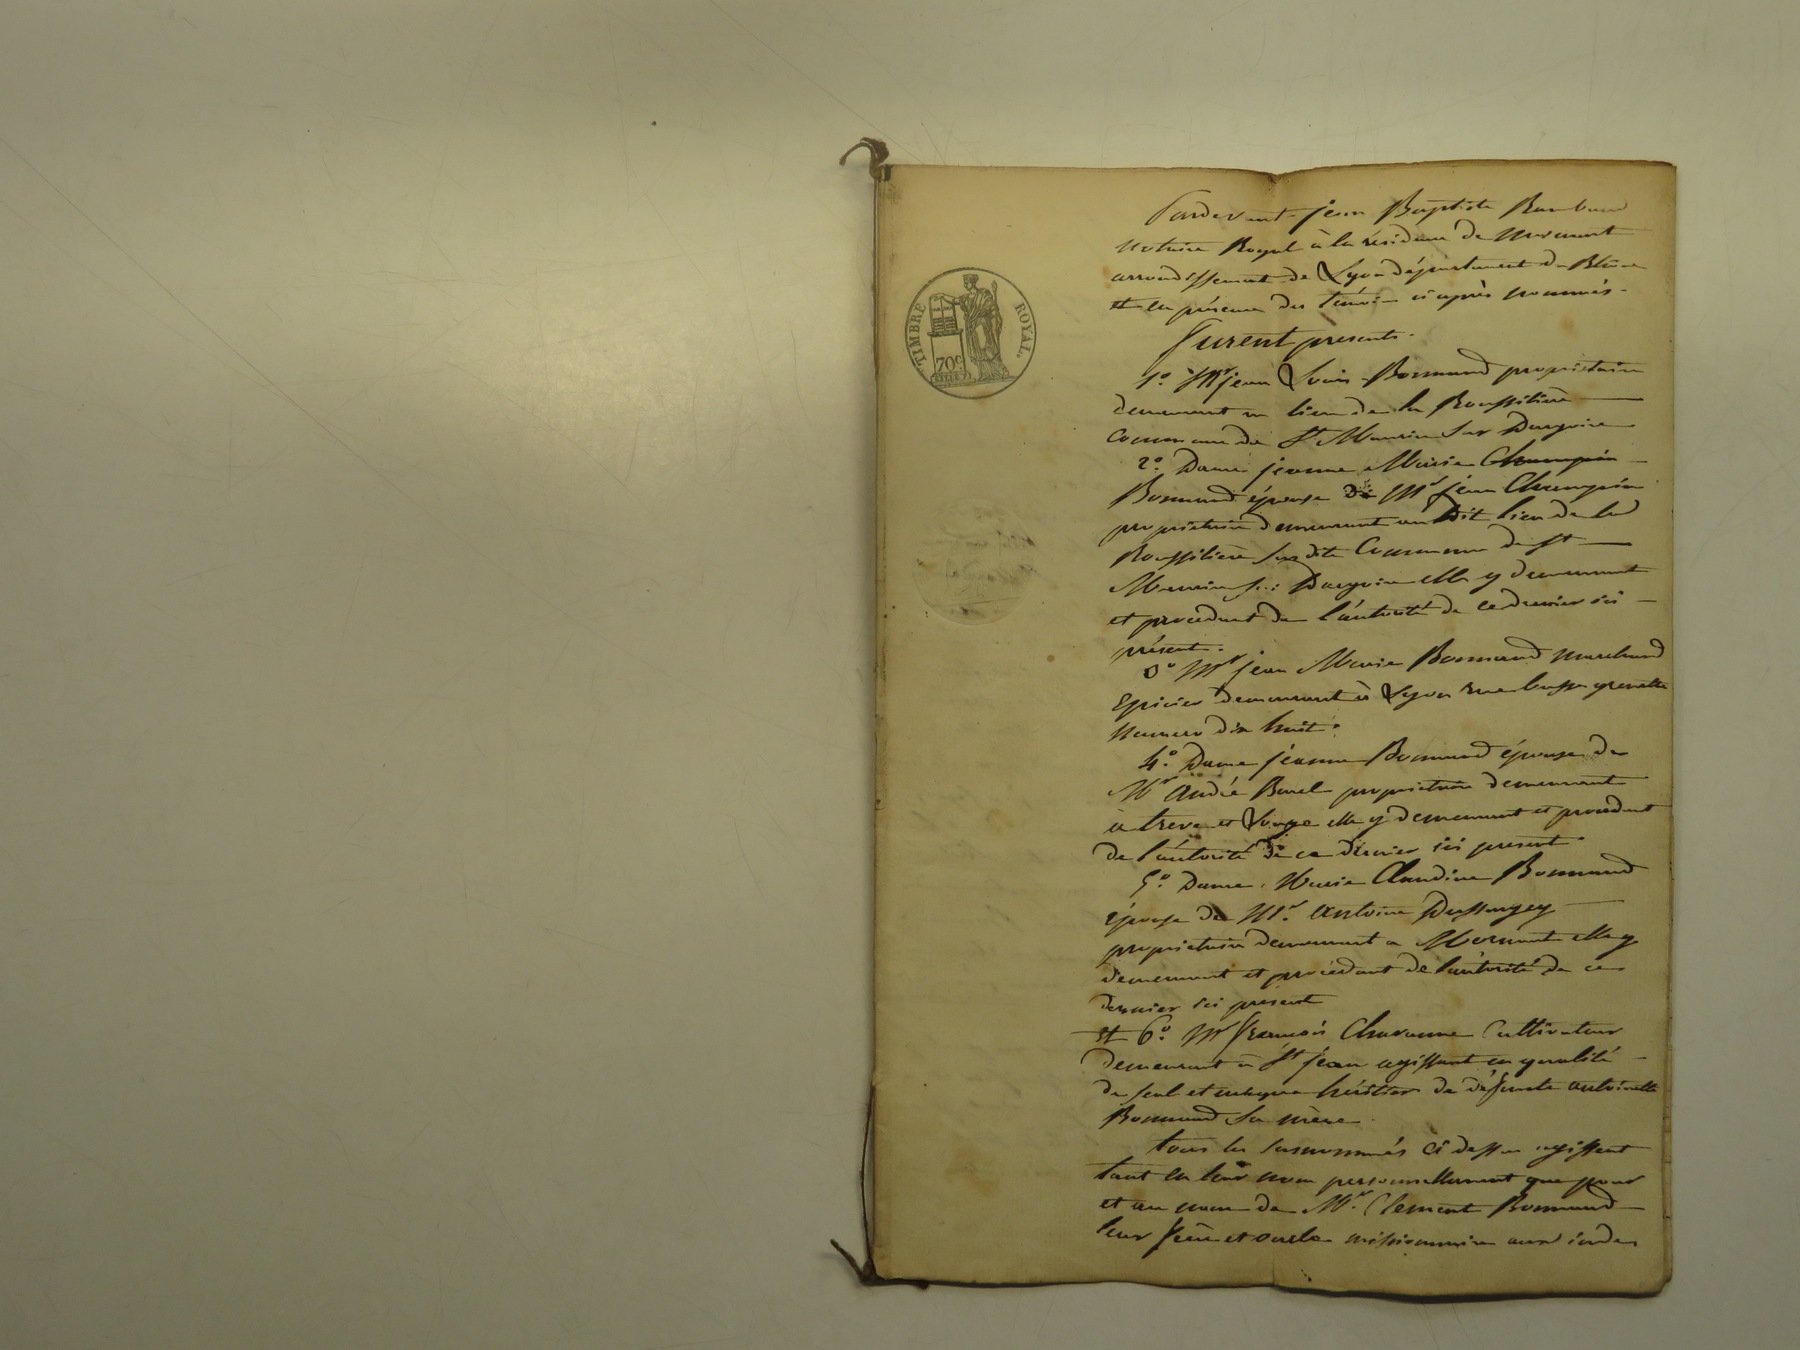 TIMBRE ROYAL
70c
Pardevant jean Baptiste Rambaud
Notaire Royal à la résidence de Mornant
arrondissement de Lyon département du Rhône
et en présence des témoins ci après nommés.
Furent presents.
1.° Mr jean Louis Bonnand propriétaire
demeurant au lieu de la Roussilière
Commune de St Maurice Sur Dargoire
2.° Dame jeanne Marie Champin
Bonnand épouse de Mr jean Champin
propriétaire demeurant au dit lieu de la
Roussilière Susdite Commune de St
Maurice Sur Dargoire elle y demeurant
et procédant de l'autorité de ce dernier ici
présent.
3° Mr jean Marie Bonnand marchand
Epicier demeurant à Lyon rue basse grenette
Numero dix huit.
4.° Dame jeanne Bonnand épouse de
Mr André Borel propriétaire demeurant
à treve et Longe elle y demeurant et procédant
de l'autorité de ce dernier ici present
5.° Dame Marie Claudine Bonnand
épouse de Mr. Antoine Dussurgey
propriétaire demeurant a Mornant elle y
demeurant et procédant de l'autorité de ce
dernier ici present
et 6.° Mr François Chavanne Cultivateur
demeurant à St jean agissant en qualité
de seul et unique héritier de défunte antoinette
Bonnand Sa mère
tous les susnommés ci dessus agissant
tant en leur nom personnellement que pour
et au nom de Mr. Clement Bonnand
leur frère et oncle missionnaire aux indes